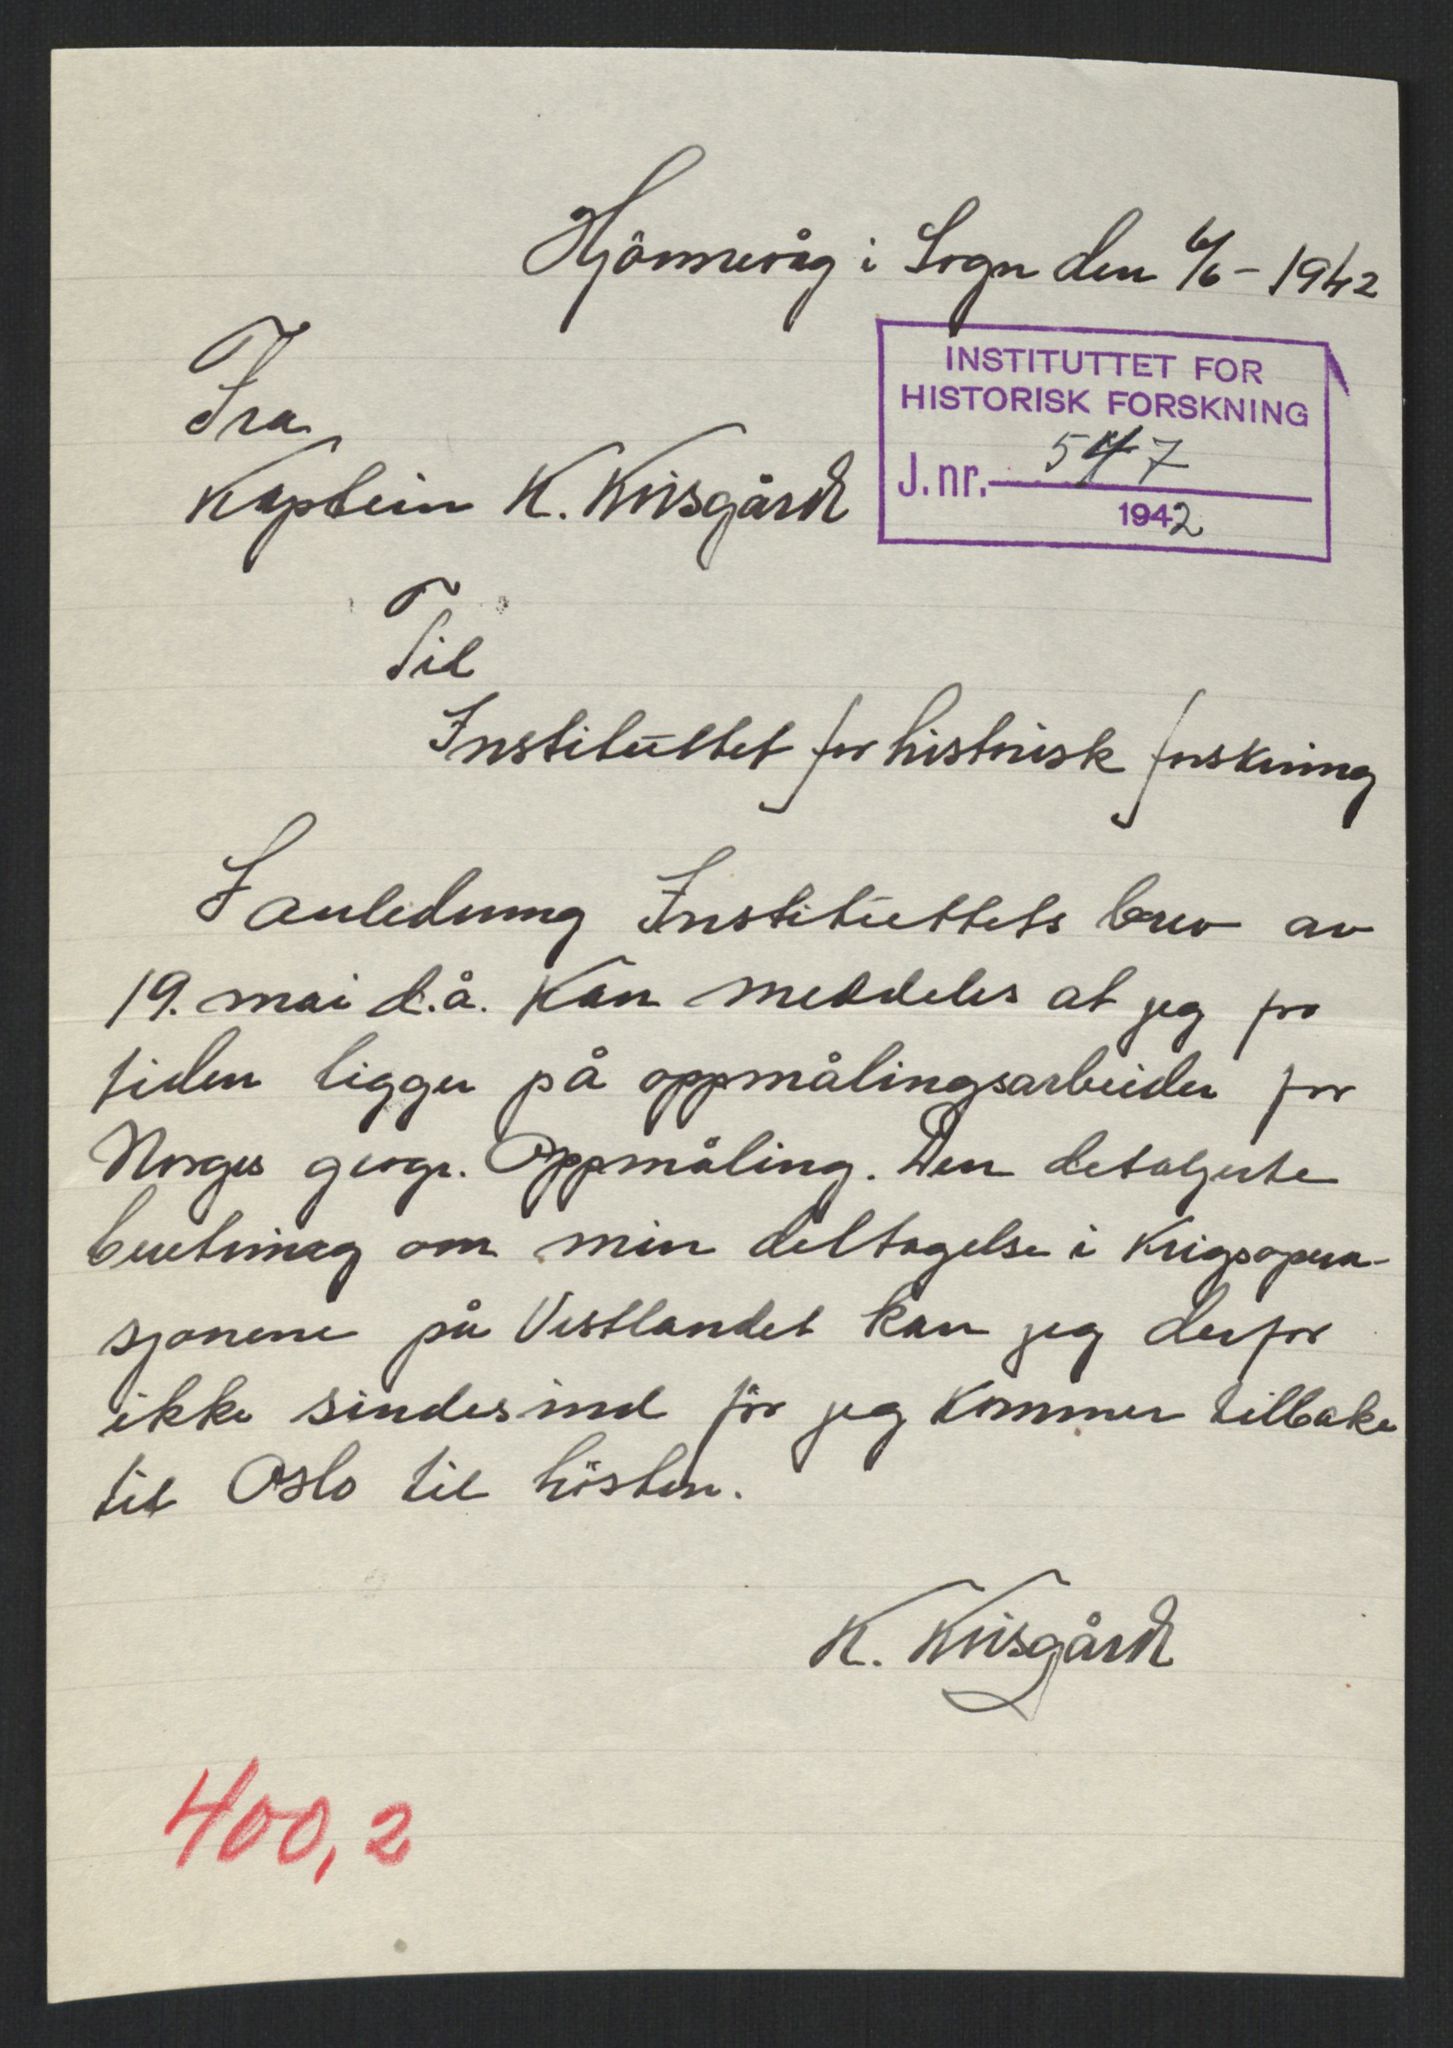 Hjönnevåg i Sogn den 6/6 - 1942
INSTITUTTET FOR
HISTORISK FORSKNING
J. nr. 547
1942
Fra
Kaptein K. Kvisgård
Til
Instituttet for historisk forskning
I anledning Instituttets brev av
19. mai d.å. kan meddeles at jeg for
tiden ligger på oppmålingsarbeider for
Norges geogr. Oppmåling. Den detaljerte
beretning om min deltagelse i krigsopera-
sjonene på Vestlandet kan jeg derfor
ikke sindes ind för jeg kommer tilbake
til Oslo til hösten.
K. Kvisgård
400,2